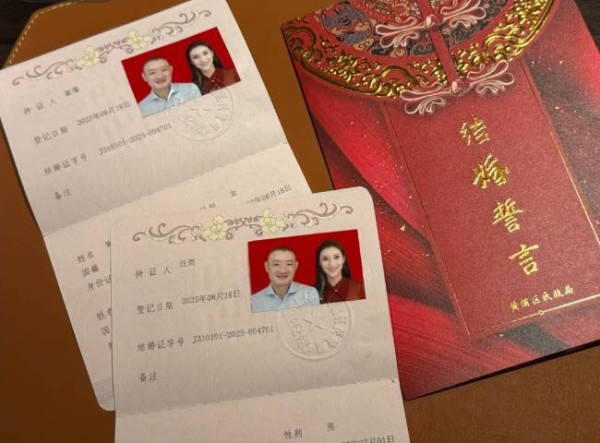 持证人
登记日期 2025年08月18日
结婚证字号 J310101-2025-004701
备注
性别 女
08月18日
姓名
国籍
身份证
持证人 任
登记日期 2025年08月18日
结婚证字号 J310101-2025-004701
备注
性别 男
结婚誓言
黄浦区民政局